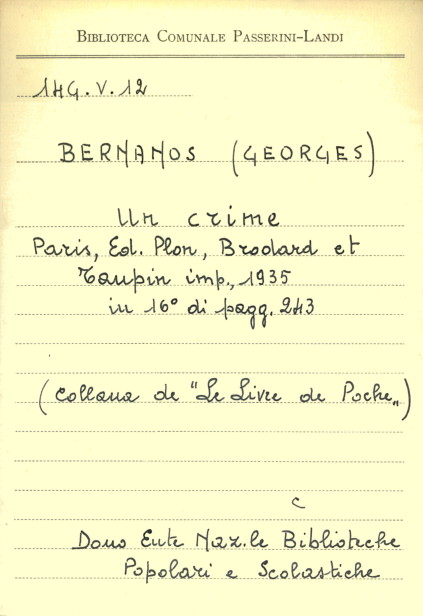 BIBLIOTECA COMUNALE PASSERINI-LANDI
14G.V.12
BERNANOS (GEORGES)
Un crime
Paris, Ed. Plon, Brodard et
Taupin imp., 1935
in 16° di pagg. 243
(Collana de "Le Livre de Poche„)
C
Dono Ente Naz.le Biblioteche
Popolari e Scolastiche